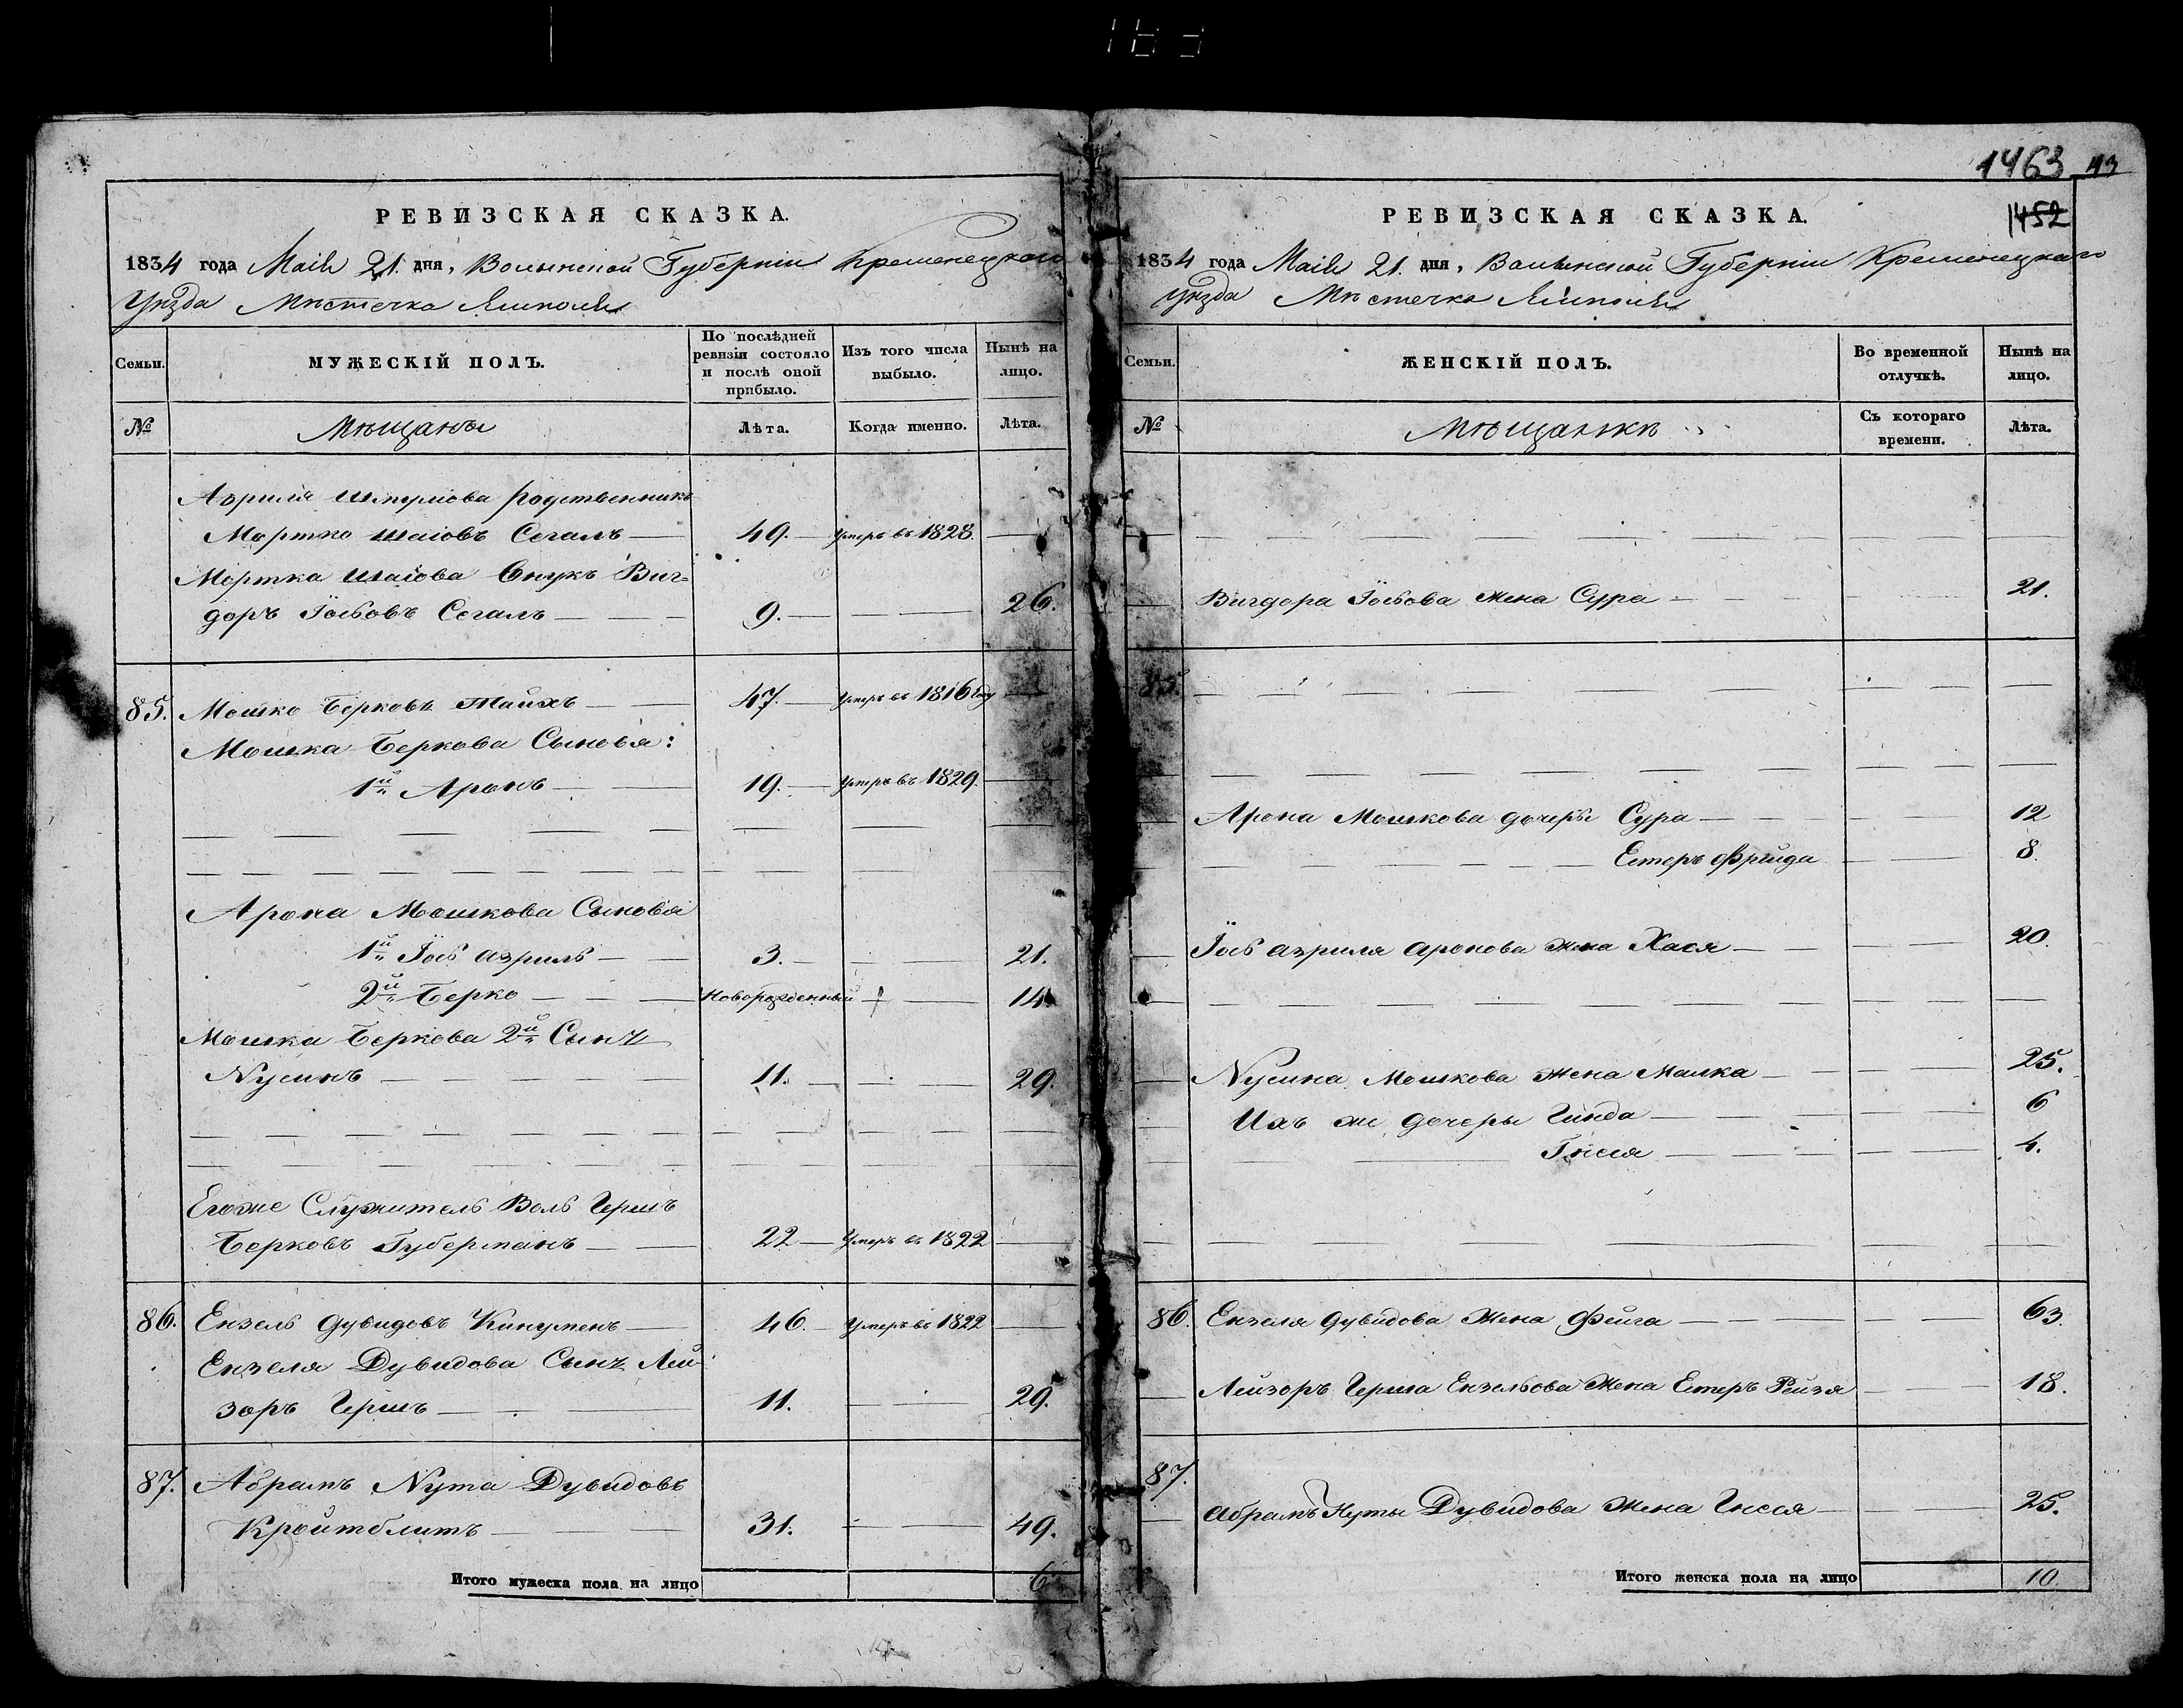 РЕВИЗСКАЯ СКАЗКА.
1834 года Маія 21. дня, Волынской Губерніи Кременецкаго
Уѣзда Мѣстечка Ямполя
Семьи.
МУЖЕСКІЙ ПОЛЪ.
По послѣдней ревизіи состояло и послѣ оной прибыло.
Изъ того числа выбыло.
Нынѣ на лицо.
№
Мѣщане
Лѣта.
Когда именно.
Лѣта.
Азриля Шмулiова родственникъ
Мортко Шаіовъ Сегалъ 49. умеръ въ 1828.
Мортка Шаіова Внукъ Виг=
доръ Іосьовъ Сегалъ 9. 26.
85. Мошко Берковъ Тайхъ 47. умеръ въ 1816 году
Мошка Беркова Сыновья:
1й Аронъ 19. умеръ въ 1829.
Арона Мошкова Сыновья
1й Іось Азриль 3. 21.
2й Берко Новорожденный 14
Мошка Беркова 2й Сынъ
Нусинъ 11. 29.
Егоже Служитель Воль Гершъ
Берковъ Губерманъ 22 умеръ въ 1822
86. Ензель Дувидовъ 46. умеръ въ 1822
Ензеля Дувидова Сынъ Лей
зоръ Гершъ 11. 29.
87. Абрамъ Нута Дувидовъ
Кройтблитъ 31. 49.
Итого мужеска пола на лицо 6
1463 43
1452
РЕВИЗСКАЯ СКАЗКА.
1834 года Маія 21. дня, Волынской Губерніи Кременецкаго
Уѣзда Мѣстечка Ямполя
Семьи.
ЖЕНСКІЙ ПОЛЪ.
Во временной отлучкѣ.
Нынѣ на лицо.
№
Мѣщанки
Съ котораго времени.
Лѣта.
Вигдора Іосьова жена Сура 21.
85.
Арона Мошкова дочери Сура 12
Естеръ Фрейда 8.
Іось Азриля Аронова жена Хася 20.
Нусина Мошкова жена Малка 25.
Ихъ же дочеры Гинда 6
Гнеся 4.
86. Ензеля Дувидова жена Фейга 63.
Лейзоръ Герша Ензельова жена Естеръ Рейзя 18.
87.
Абрамъ Нуты Дувидова жена Гнеся 25.
Итого женска пола на лицо 10.